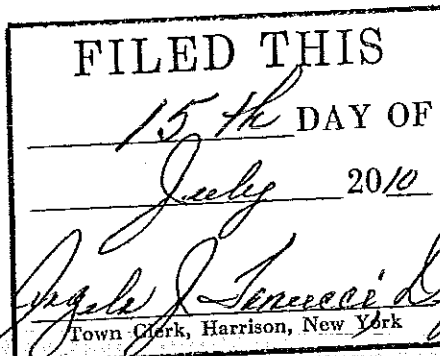 FILED THIS
15th DAY OF
July 2010
Angela J
Town Clerk, Harrison, New York